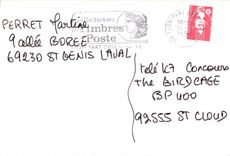 PERRET Martine
9 allée BOREE
69230 ST GENIS LAVAL
Collectionnez
les Timbres
Poste
télé K7 Concours
The BIRDCAGE
BP 400
92555 ST CLOUD